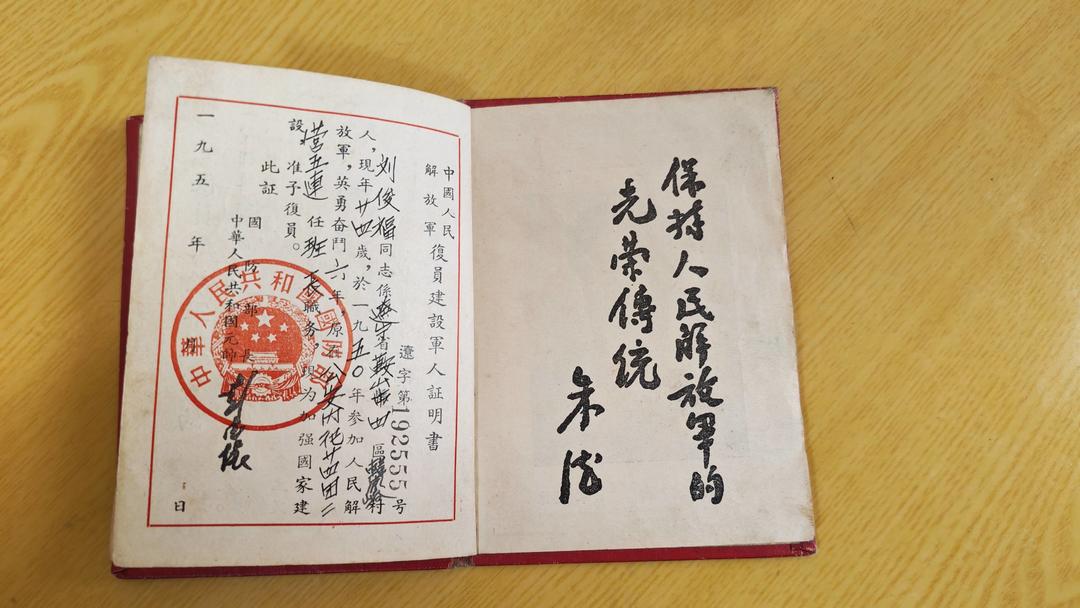 中國人民
解放軍
復員建設軍人証明書
遼字第192555号
刘俊福同志係遼宁省鞍山市四區村
人,現年廿四歲,於一九五〇年參加人民解
放軍,英勇奋鬥六年,原在公安内
营五連任班長職务,現为加强國家建
設,准予復員。
此証
國防部長
中華人民共和國元帥
彭德懷
一九五年月日
中華人民共和國國防部
保持人民解放軍的
光荣傳統
朱德